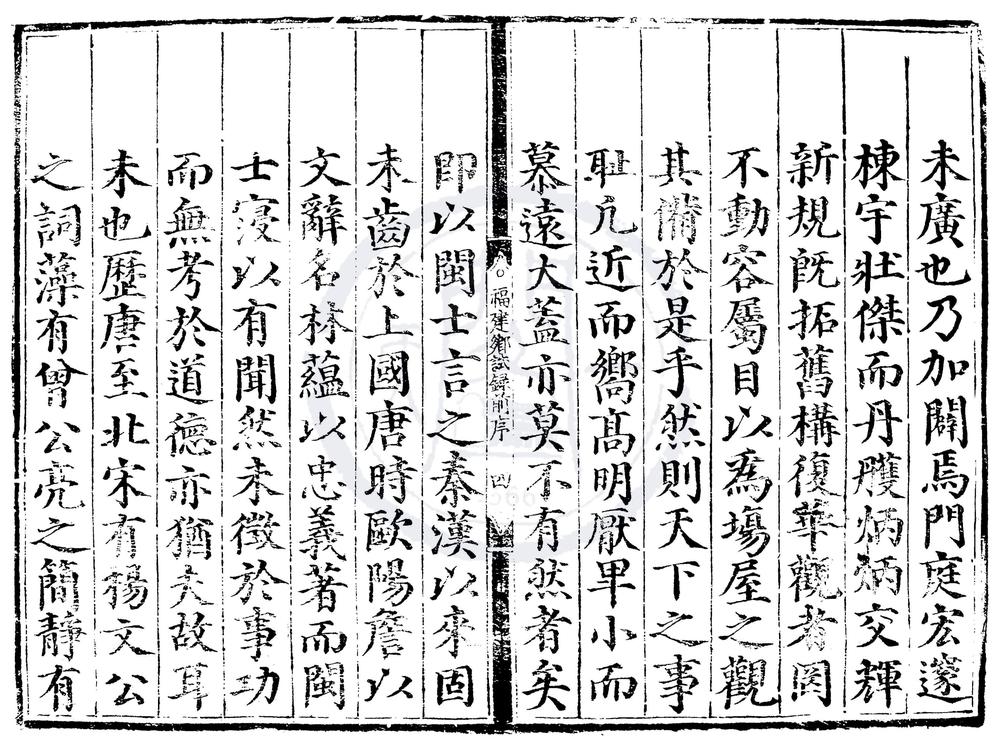 未廣也乃加闢焉門庭宏邃
棟宇壯傑而丹雘炳炳交輝
新規旣拓舊構復華觀者罔
不動容屬目以爲塲屋之觀
其備於是乎然則天下之事
耻凢近而嚮髙明厭卑小而
慕遠大蓋亦莫不有然者矣
福建鄉試錄前序 四
即以閩士言之秦漢以來固
未齒於上國唐時歐陽詹以
文辭名林蘊以忠義著而閩
士寖以有聞然未徵於事功
而無考於道德亦猶夫故耳
未也歷唐至北宋有楊文公
之詞藻有曾公亮之簡靜有